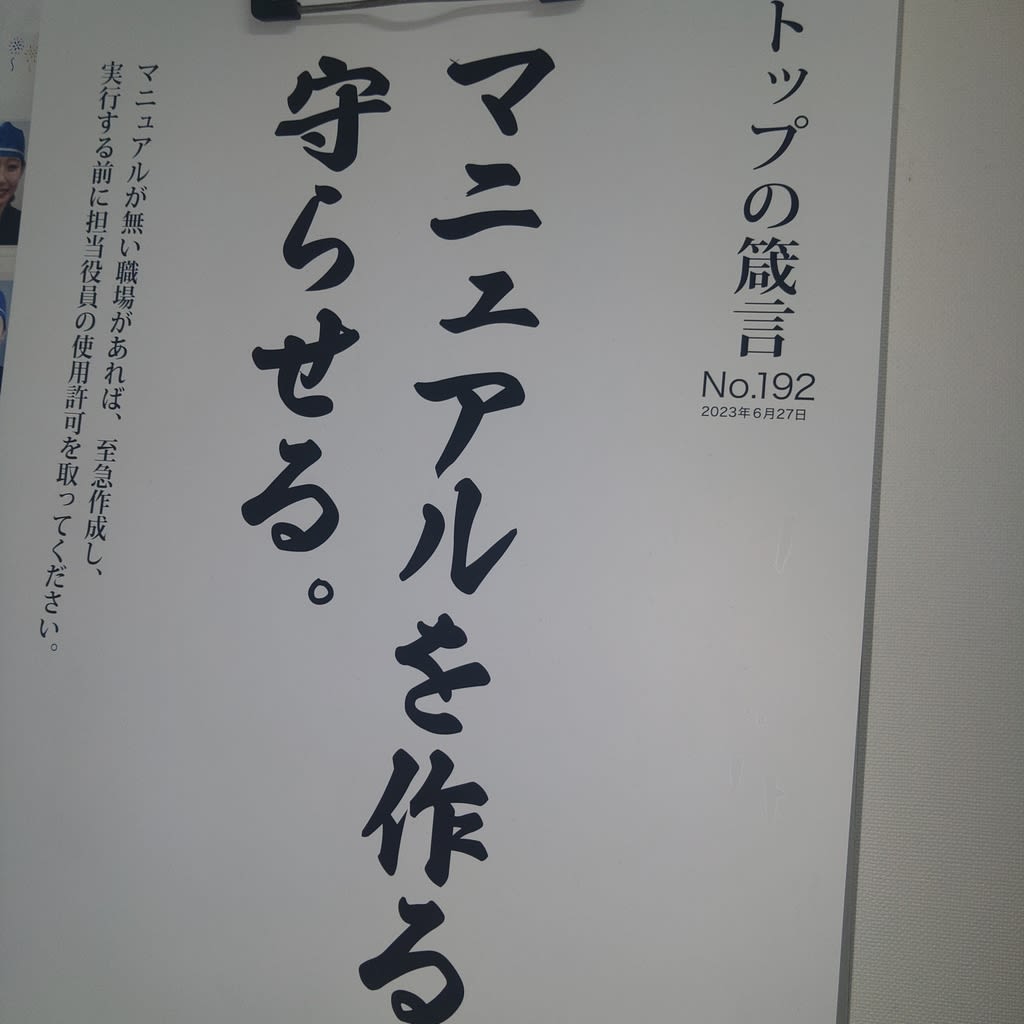 トップの箴言
No.192
2023年6月27日
マニュアルを作る
守らせる。
マニュアルが無い職場があれば、至急作成し、
実行する前に担当役員の使用許可を取ってください。